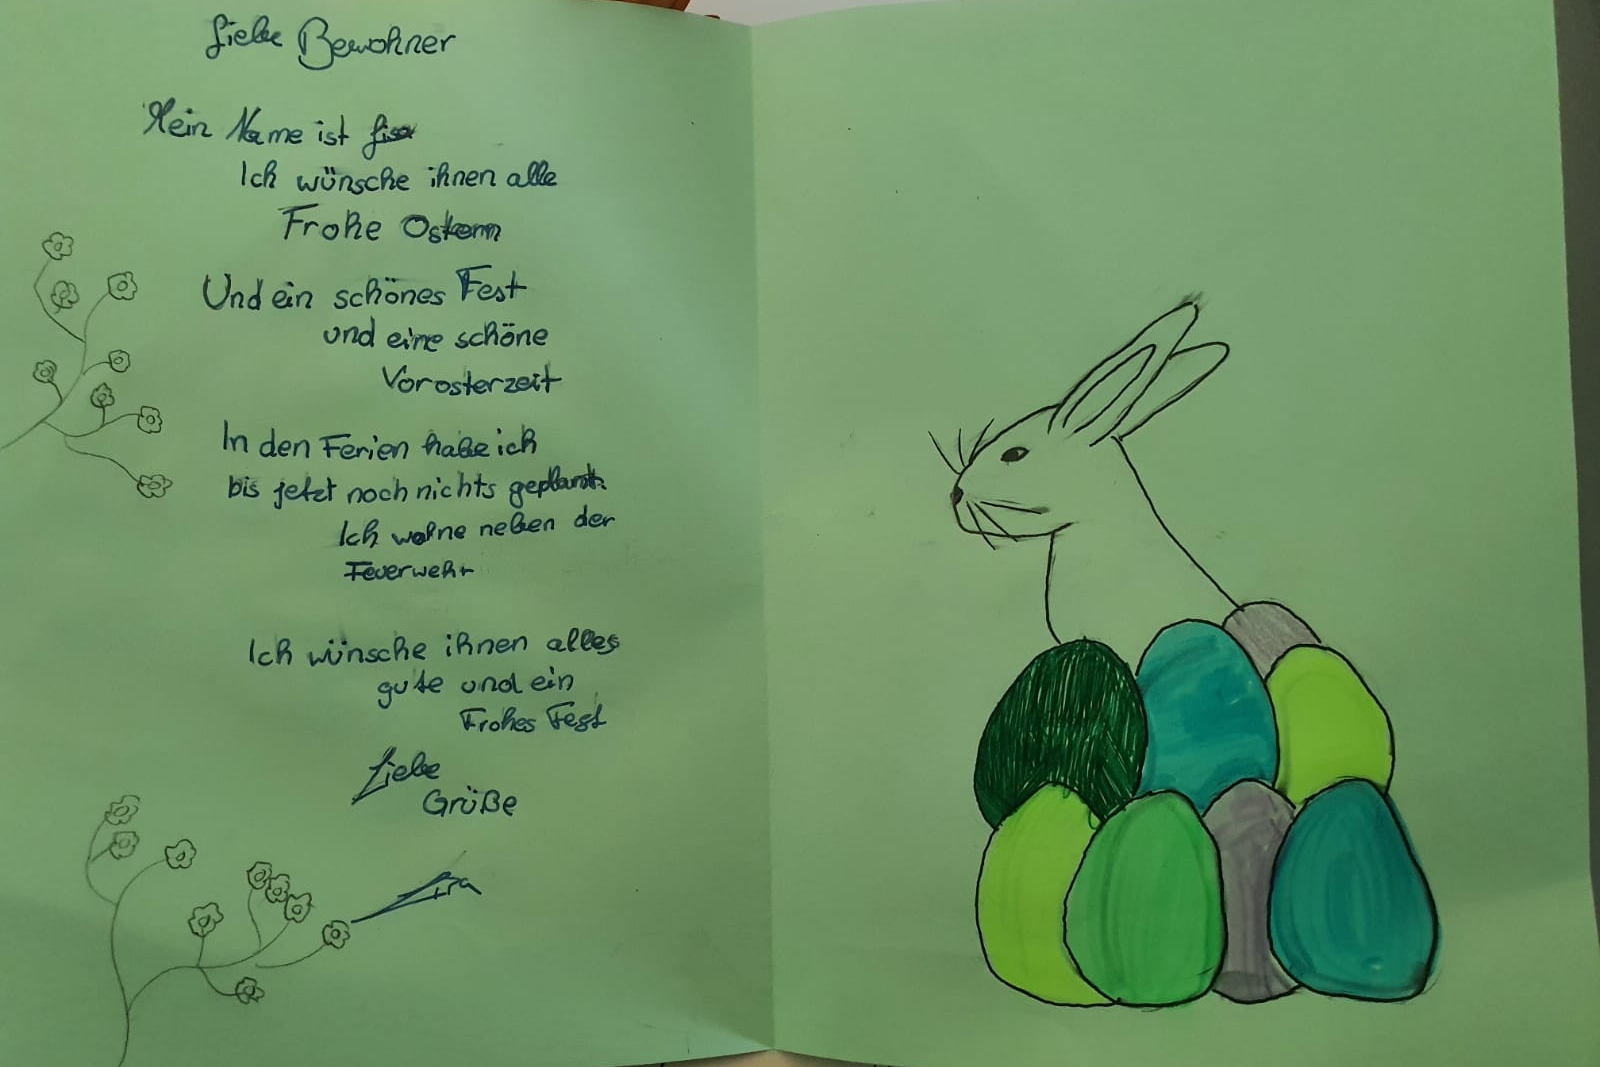 Liebe Bewohner
Mein Name ist Lisa
Ich wünsche ihnen alle
Frohe Ostern
Und ein schönes Fest
und eine schöne
Vorosterzeit
In den Ferien habe ich
bis jetzt noch nichts geplant.
Ich wohne neben der
Feuerwehr
Ich wünsche ihnen alles
gute und ein
Frohes Fest
Liebe
Grüße